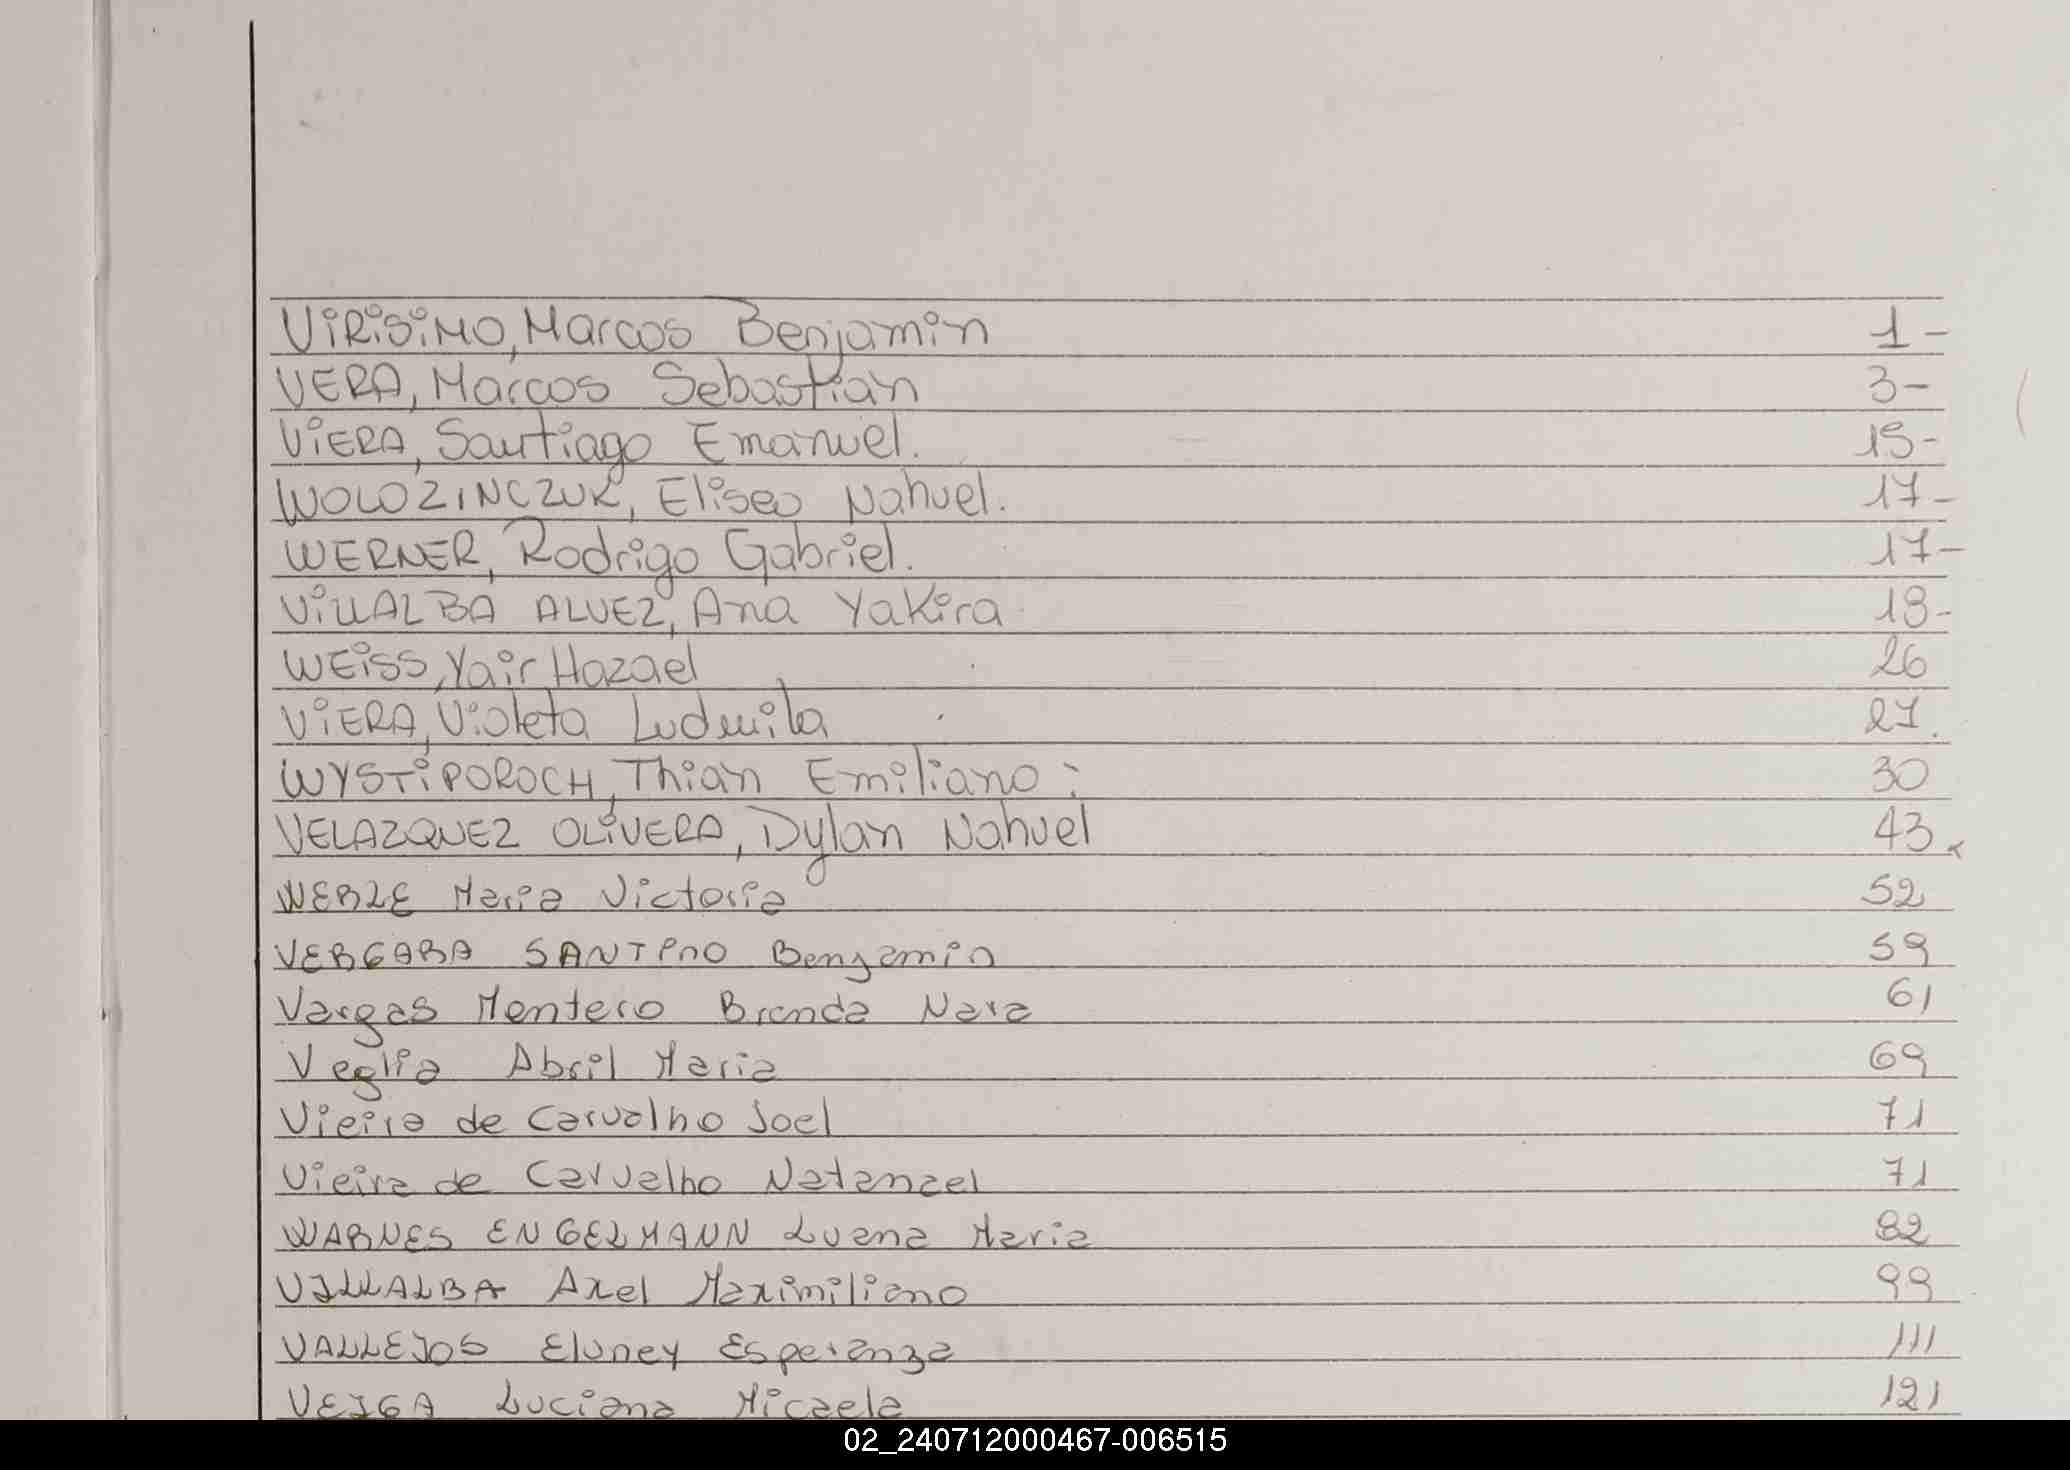 VIRISIMO, Marcos Benjamin 1-
VERA, Marcos Sebastian 3-
VIERA, Santiago Emanuel. 15-
WOLOZINCZUK, Eliseo Nahuel. 17-
WERNER, Rodrigo Gabriel. 17-
VILLALBA ALVEZ, Ana Yakira 18-
WEISS, Yair Hazael 26
VIERA, Violeta Ludmila 27.
WYSTIPOROCH, Thian Emiliano: 30
VELAZQUEZ OLIVERA, Dylan Nahuel 43
WERLE Maria Victoria 52
VERGARA SANTINO Benjamin 59
Vargas Montero Brenda Nara 61
Veglia Abril Maria 69
Vieira de Carvalho Joel 71
Vieira de Carvalho Natanael 71
WARNES ENGELMANN Luana Maria 82
VILLALBA Axel Maximiliano 99
VALLEJOS Eluney Esperanza 111
VEIGA Luciana Micaela 121
02_240712000467-006515